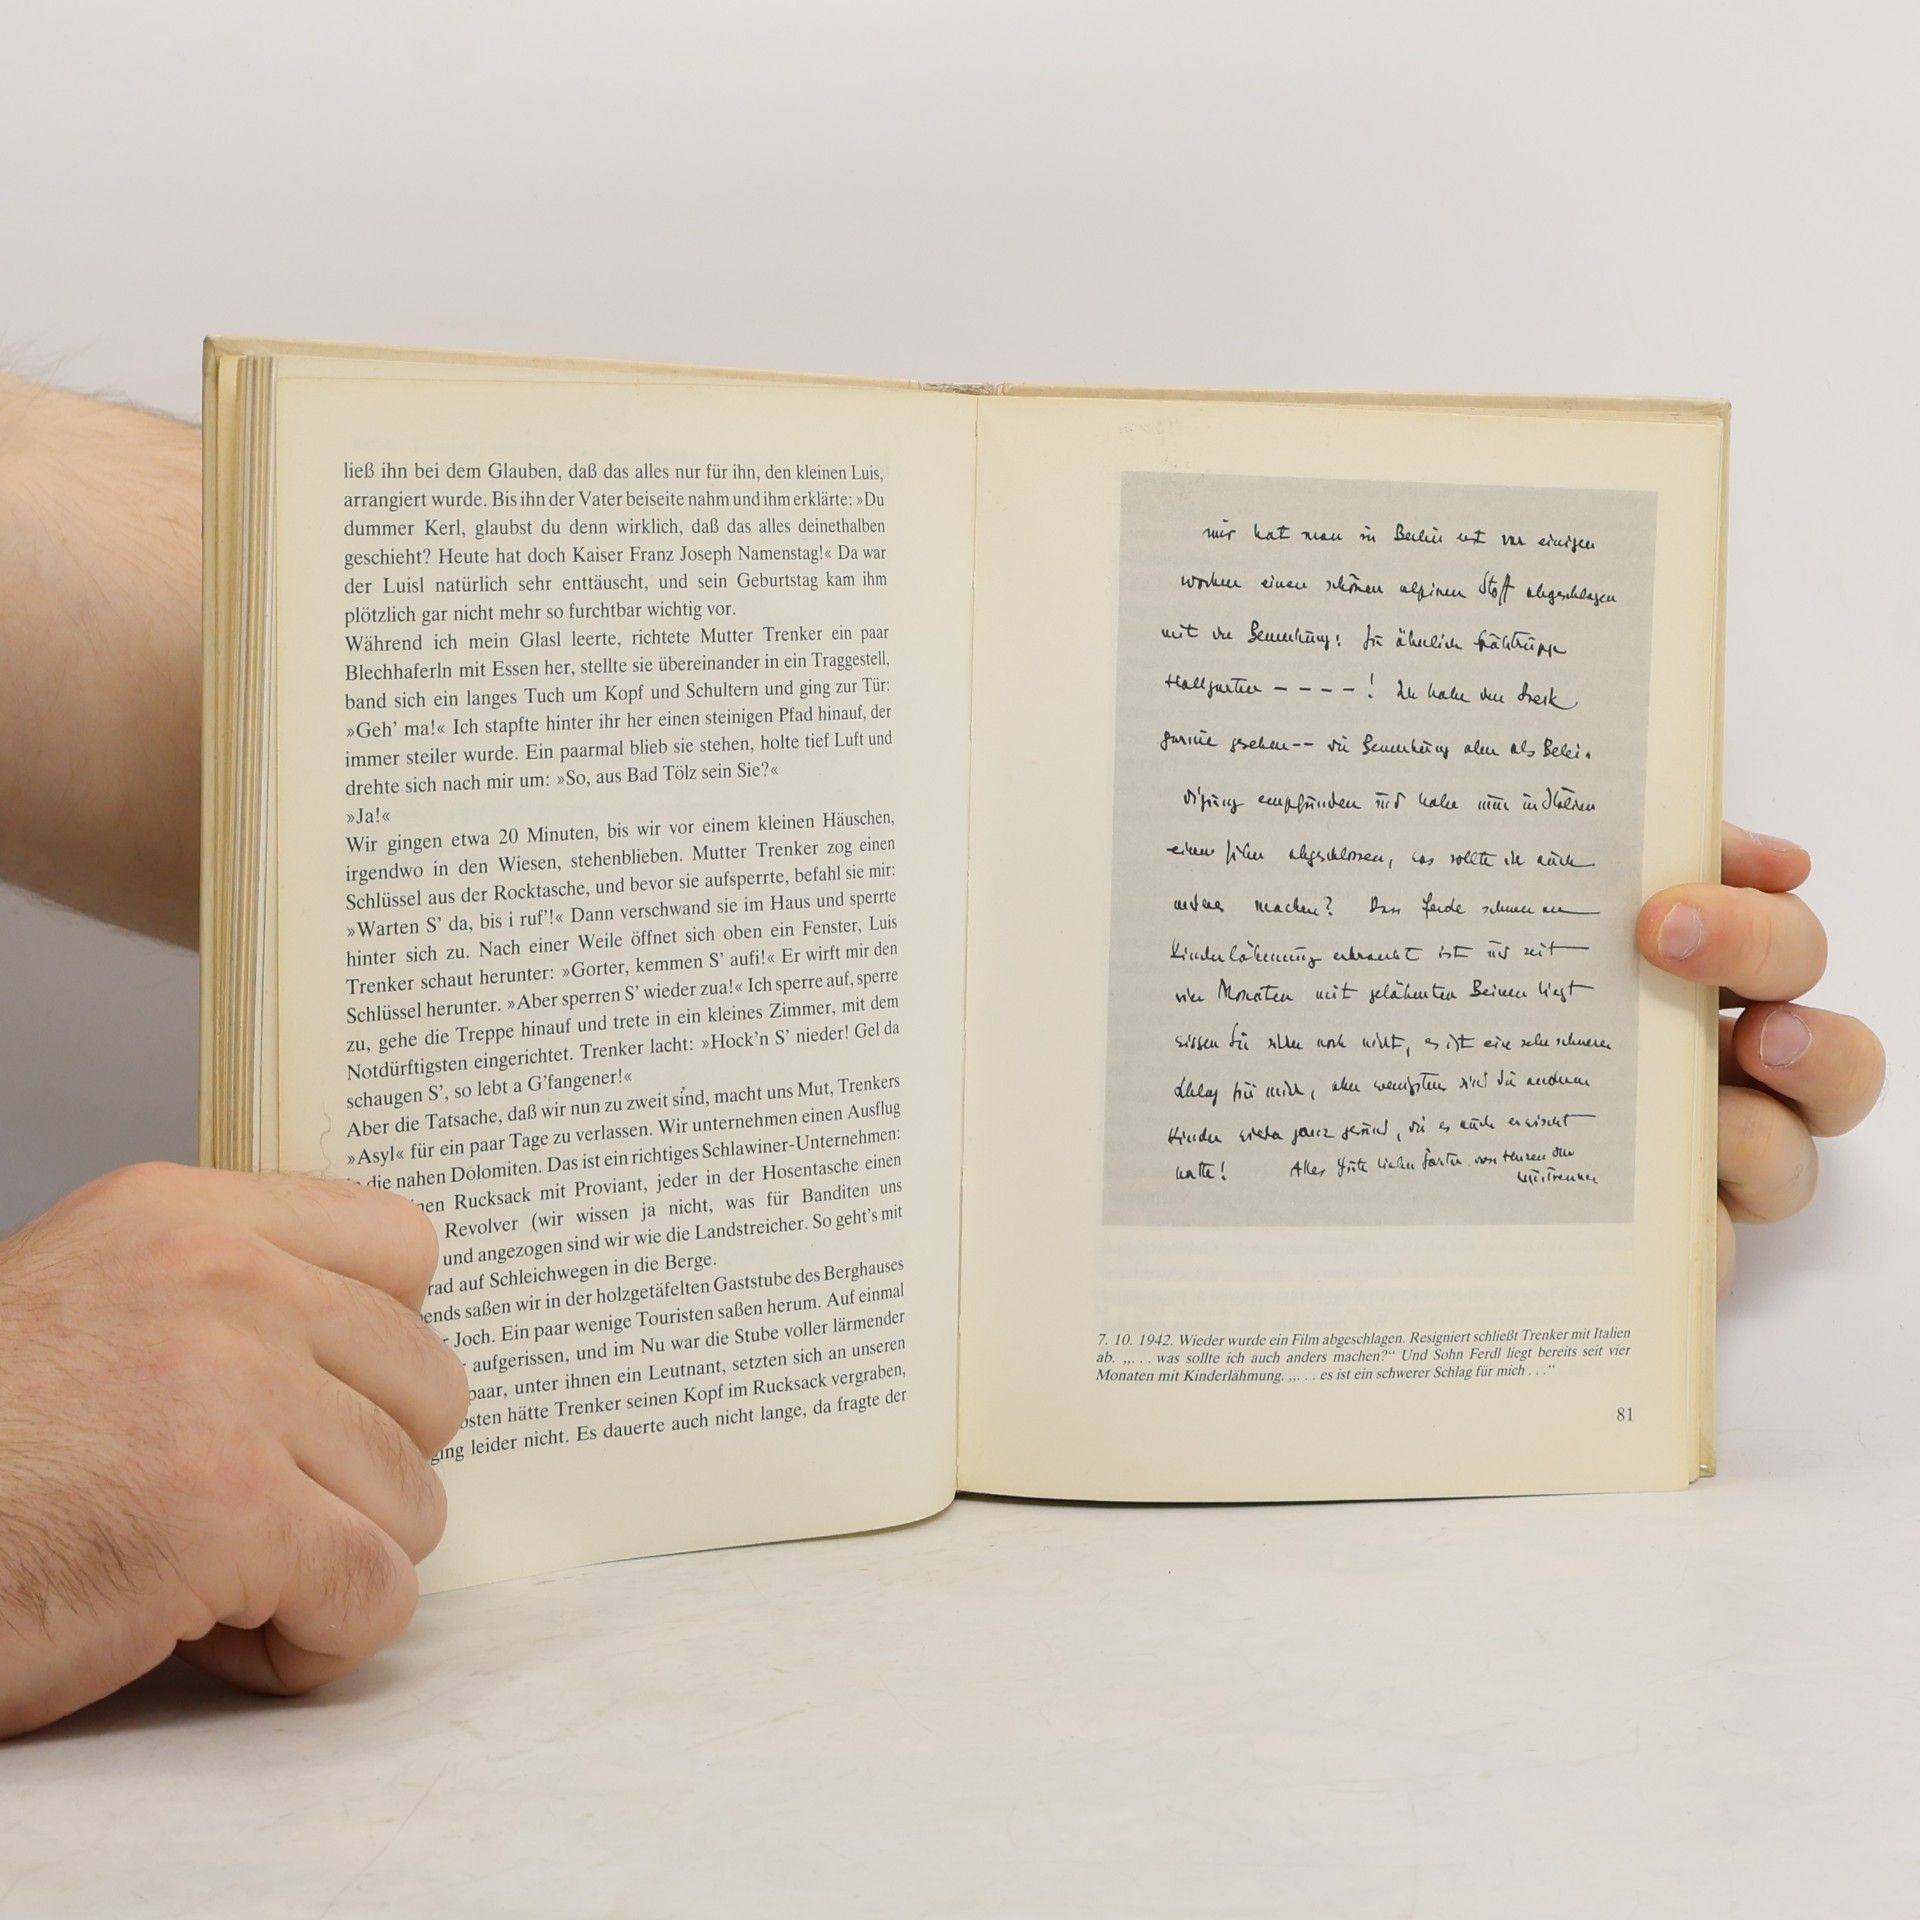 ließ ihn bei dem Glauben, daß das alles nur für ihn, den kleinen Luis,
arrangiert wurde. Bis ihn der Vater beiseite nahm und ihm erklärte: »Du
dummer Kerl, glaubst du denn wirklich, daß das alles deinethalben
geschieht? Heute hat doch Kaiser Franz Joseph Namenstag!« Da war
der Luisl natürlich sehr enttäuscht, und sein Geburtstag kam ihm
plötzlich gar nicht mehr so furchtbar wichtig vor.
Während ich mein Glasl leerte, richtete Mutter Trenker ein paar
Blechhaferln mit Essen her, stellte sie übereinander in ein Traggestell,
band sich ein langes Tuch um Kopf und Schultern und ging zur Tür:
»Geh' ma!« Ich stapfte hinter ihr her einen steinigen Pfad hinauf, der
immer steiler wurde. Ein paarmal blieb sie stehen, holte tief Luft und
drehte sich nach mir um: »So, aus Bad Tölz sein Sie?«
»Ja!«
Wir gingen etwa 20 Minuten, bis wir vor einem kleinen Häuschen,
irgendwo in den Wiesen, stehenblieben. Mutter Trenker zog einen
Schlüssel aus der Rocktasche, und bevor sie aufsperrte, befahl sie mir:
»Warten S' da, bis i ruf'!« Dann verschwand sie im Haus und sperrte
hinter sich zu. Nach einer Weile öffnet sich oben ein Fenster, Luis
Trenker schaut herunter: »Gorter, kemmen S' aufi!« Er wirft mir den
Schlüssel herunter. »Aber sperren S' wieder zua!« Ich sperre auf, sperre
zu, gehe die Treppe hinauf und trete in ein kleines Zimmer, mit dem
Notdürftigsten eingerichtet. Trenker lacht: »Hock'n S' nieder! Gel da
schaugen S', so lebt a G'fangener!«
Aber die Tatsache, daß wir nun zu zweit sind, macht uns Mut, Trenkers
»Asyl« für ein paar Tage zu verlassen. Wir unternehmen einen Ausflug
die nahen Dolomiten. Das ist ein richtiges Schlawiner-Unternehmen:
Rucksack mit Proviant, jeder in der Hosentasche einen
Revolver (wir wissen ja nicht, was für Banditen uns
und angezogen sind wir wie die Landstreicher. So geht's mit
auf Schleichwegen in die Berge.
saßen wir in der holzgetäfelten Gaststube des Berghauses
Joch. Ein paar wenige Touristen saßen herum. Auf einmal
aufgerissen, und im Nu war die Stube voller lärmender
paar, unter ihnen ein Leutnant, setzten sich an unseren
hätte Trenker seinen Kopf im Rucksack vergraben,
ging leider nicht. Es dauerte auch nicht lange, da fragte der
mir hat man in Berlin erst vor einigen
Wochen einen schönen alpinen Stoff abgeschlagen
mit der Bemerkung: zu ähnlich Spähtrupp
Hallgarten – – – – ! Ich habe den Dreck
gesehen -- die Bemerkung aber als Belei-
digung empfunden und habe nun in Italien
einen Film abgeschlossen, was sollte ich auch
anders machen? Dass Ferdl schwer an
Kinderlähmung erkrankt ist und seit
vier Monaten mit gelähmten Beinen liegt
wissen Sie sicher noch nicht, es ist ein sehr schwerer
Schlag für mich, aber wenigstens sind die anderen
Kinder wieder ganz gesund, die es auch erwischt
hatte! Alles Gute lieber Gorter von Herzen Ihr
Luis Trenker
7. 10. 1942. Wieder wurde ein Film abgeschlagen. Resigniert schließt Trenker mit Italien
ab. „. . . was sollte ich auch anders machen?“ Und Sohn Ferdl liegt bereits seit vier
Monaten mit Kinderlähmung. „. . . es ist ein schwerer Schlag für mich . . .“
81